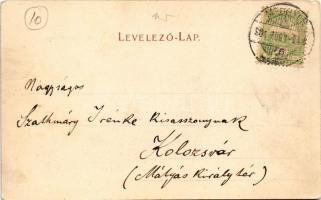 10
LEVELEZŐ-LAP.
Nagyságos
Szathmáry Irénke kisasszonynak
Kolozsvár
(Mátyás király tér)